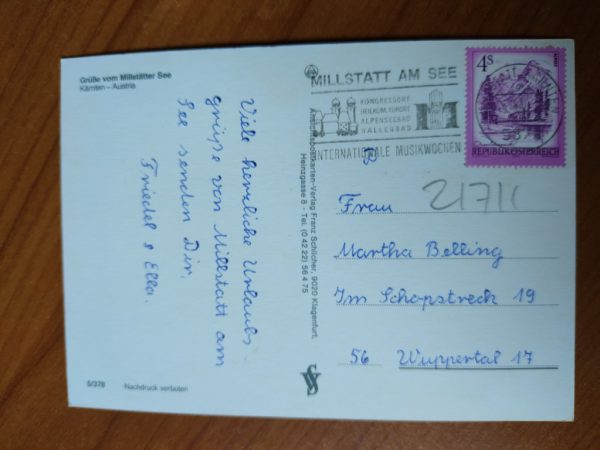 Grüße vom Millstätter See
Kärnten – Austria
Viele herzliche Urlaubs-
grüße von Millstatt am
See senden Dir,
Friedel & Ella.
5/378 Nachdruck verboten
Ansichtspostkarten-Verlag Franz Schilcher, 9020 Klagenfurt,
Heinzgasse 8 - Tel. (0 42 22) 56 4 75
MILLSTATT AM SEE
KONGRESSORT
HEILKLIM. KURORT
ALPENSEEBAD
HALLENBAD
INTERNATIONALE MUSIKWOCHEN
4S
REPUBLIK ÖSTERREICH
Frau
Martha Belling
Im Schopstreck 19
56 Wuppertal 17